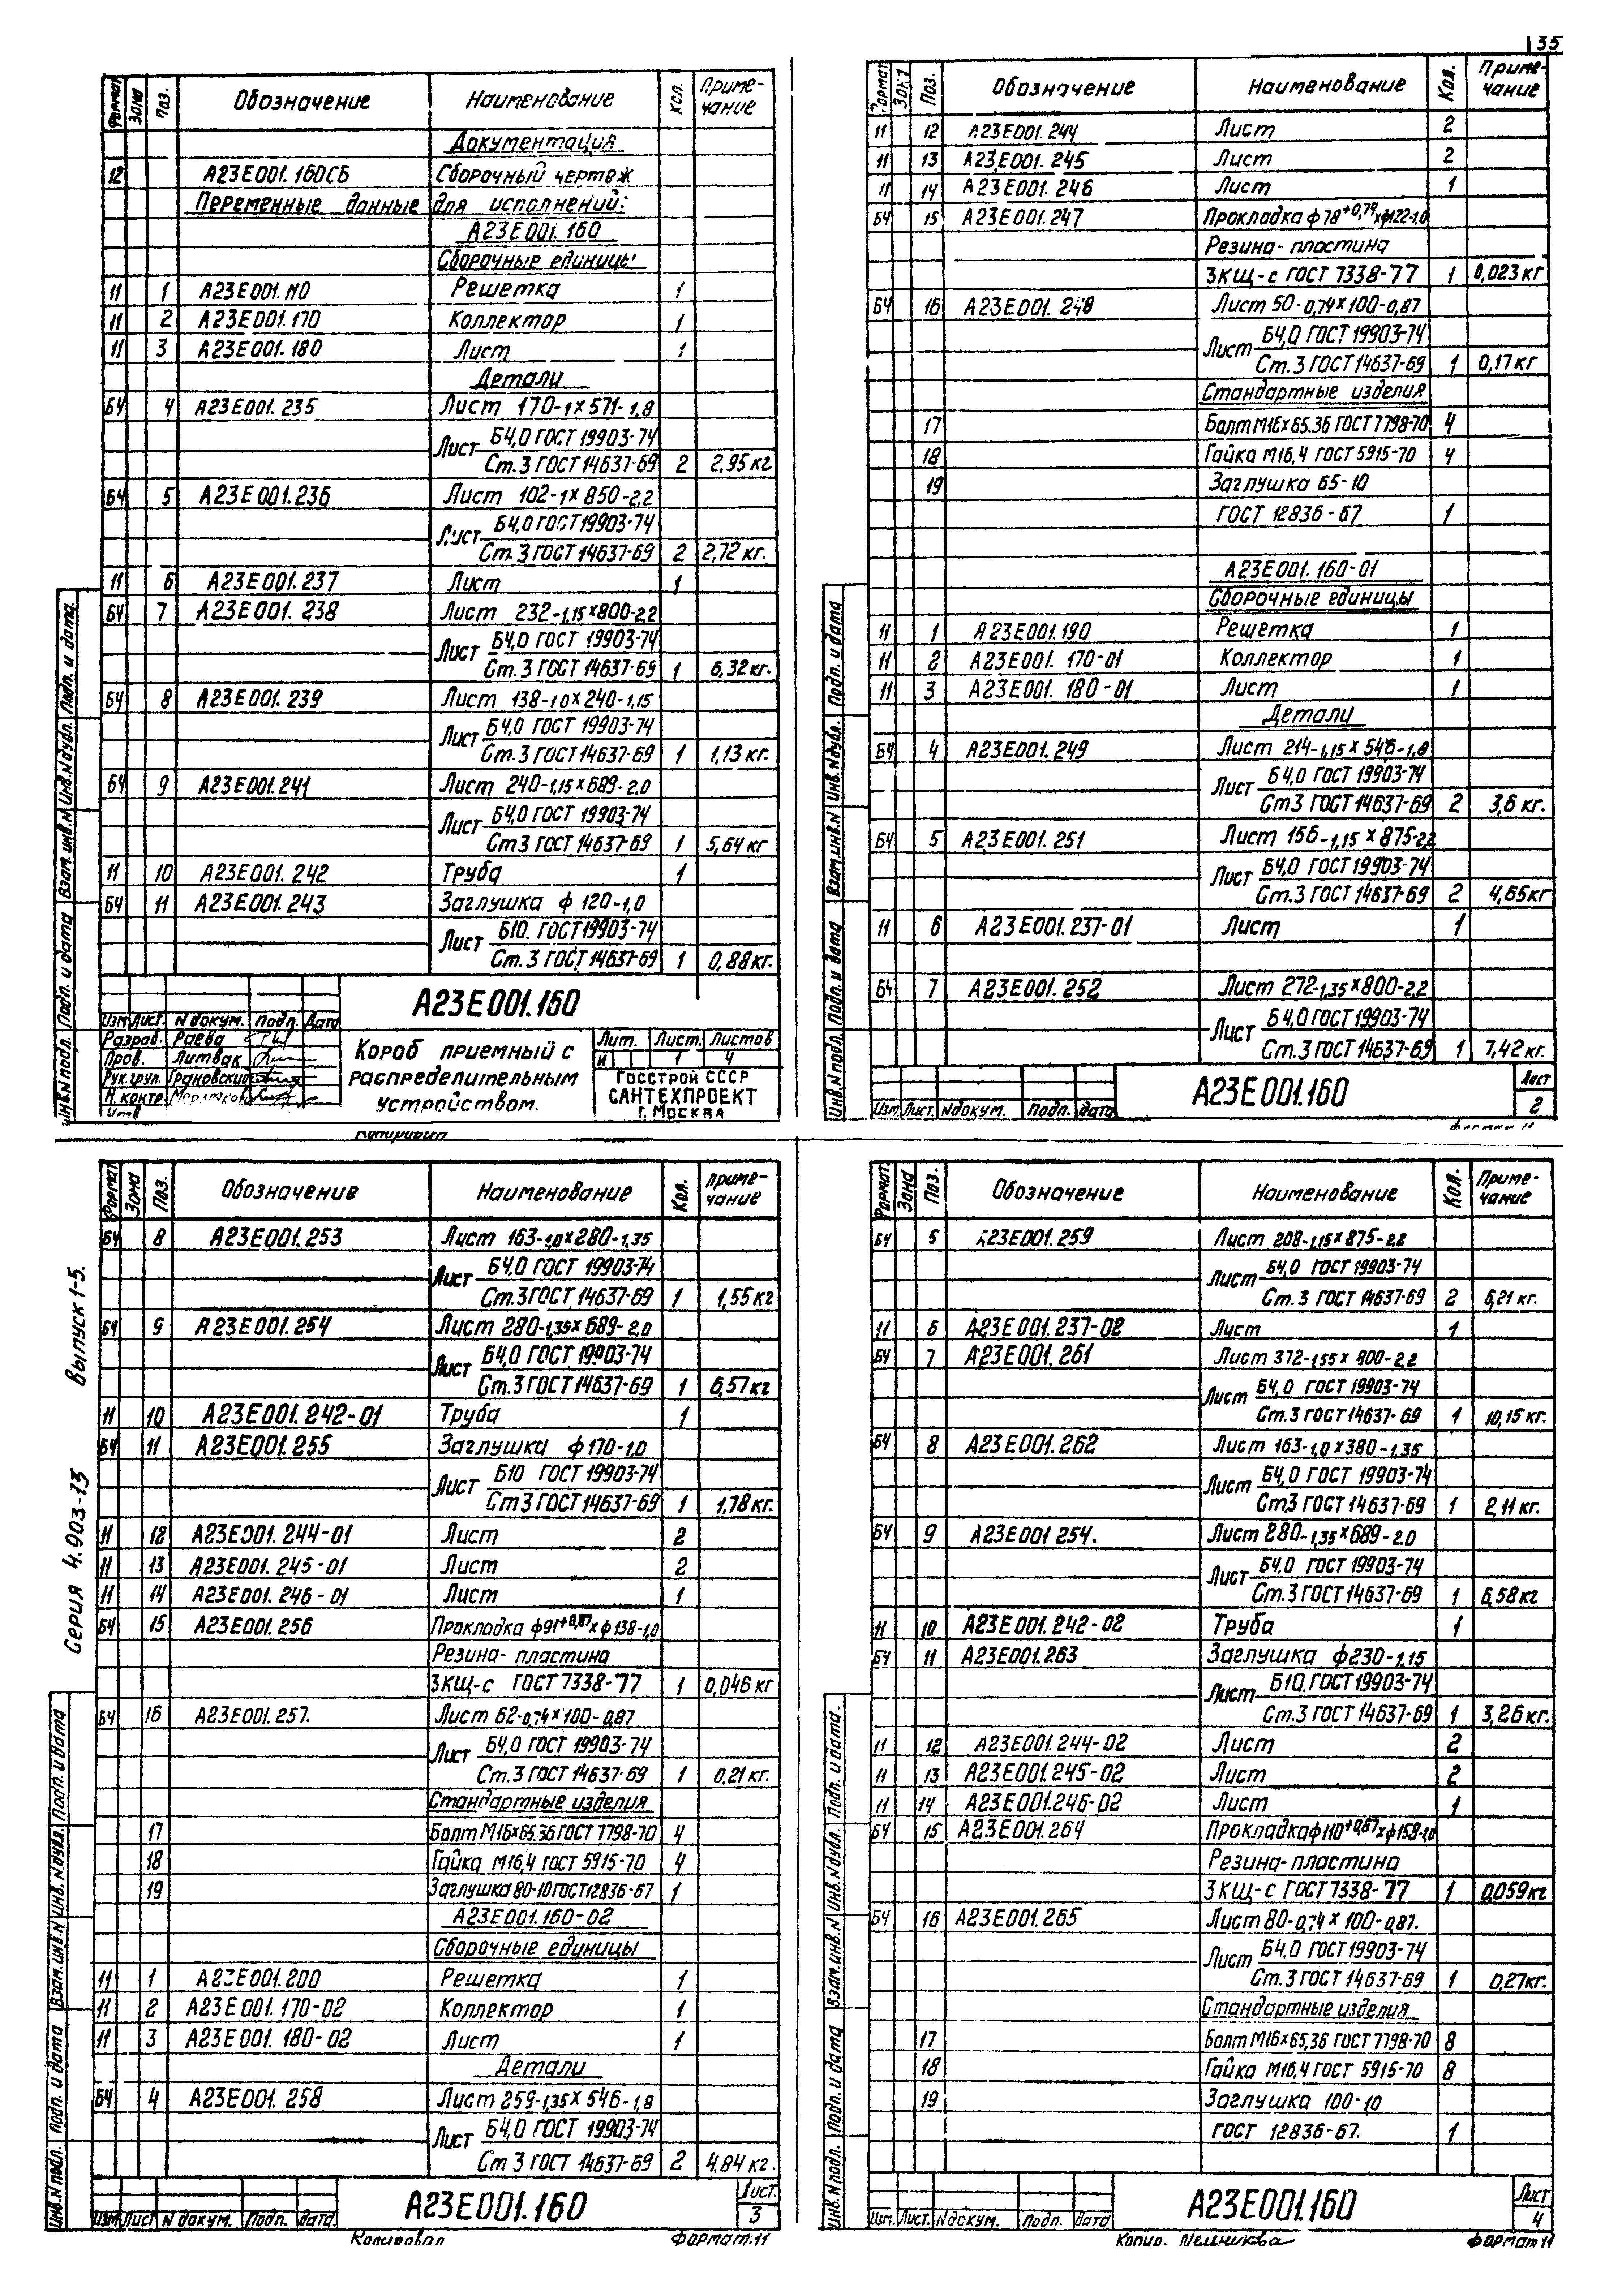 135
Формат Зона Поз. Обозначение Наименование Кол. Примечание
Документация
12 А23Е001.160СБ Сборочный чертеж
Переменные данные для исполнений:
А23Е001.160
Сборочные единицы
11 1 А23Е001.110 Решетка 1
11 2 А23Е001.170 Коллектор 1
11 3 А23Е001.180 Лист 1
Детали
БЧ 4 А23Е001.235 Лист 170-1х571-1,8
Лист Б4,0 ГОСТ 19903-74
Ст.3 ГОСТ 14637-69 2 2,95кг
БЧ 5 А23Е001.236 Лист 102-1х850-2,2
Лист Б4,0 ГОСТ 19903-74
Ст.3 ГОСТ 14637-69 2 2,72кг.
11 6 А23Е001.237 Лист 1
БЧ 7 А23Е001.238 Лист 232-1,15х800-2,2
Лист Б4,0 ГОСТ 19903-74
Ст.3 ГОСТ 14637-69 1 6,32кг.
БЧ 8 А23Е001.239 Лист 138-1,0х240-1,15
Лист Б4,0 ГОСТ 19903-74
Ст.3 ГОСТ 14637-69 1 1,13кг.
БЧ 9 А23Е001.241 Лист 240-1,15х689-2,0
Лист Б4,0 ГОСТ 19903-74
Ст3 ГОСТ 14637-69 1 5,64кг
11 10 А23Е001.242 Труба 1
БЧ 11 А23Е001.243 Заглушка ф 120-1,0
Лист Б10. ГОСТ 19903-74
Ст.3 ГОСТ 14637-69 1 0,88кг.
А23Е001.160
Изм Лист. N докум. Подп. Дата
Разраб. Раева
Пров. Литвак
Рук.груп. Грановский
Н.контр
Утв
Короб приемный с
распределительным
устройством.
Лит. Лист. Листов
И 1 4
Госстрой СССР
САНТЕХПРОЕКТ
г. Москва
Копировал
Инв.N подл. Подп. и дата Взам.инв.N Инв.N дубл. Подп. и дата.
Формат Зона Поз. Обозначение Наименование Кол. Примечание
11 12 А23Е001.244 Лист 2
11 13 А23Е001.245 Лист 2
11 14 А23Е001.246 Лист 1
БЧ 15 А23Е001.247 Прокладка ф78+0,74хф122-1,0
Резина-пластина
3КЩ-с ГОСТ 7338-77 1 0,023кг
БЧ 16 А23Е001.248 Лист 50-0,74х100-0,87
Лист Б4,0 ГОСТ 19903-74
Ст.3 ГОСТ 14637-69 1 0,17кг
Стандартные изделия
17 Болт М16х65.36 ГОСТ 7798-70 4
18 Гайка М16,4 ГОСТ 5915-70 4
19 Заглушка 65-10
ГОСТ 12836-67 1
А23Е001.160-01
Сборочные единицы
11 1 А23Е001.190 Решетка 1
11 2 А23Е001.170-01 Коллектор 1
11 3 А23Е001.180-01 Лист 1
Детали
БЧ 4 А23Е001.249 Лист 214-1,15х546-1,8
Лист Б4,0 ГОСТ 19903-74
Ст3 ГОСТ 14637-69 2 3,6кг.
БЧ 5 А23Е001.251 Лист 156-1,15х875-2,2
Лист Б4,0 ГОСТ 19903-74
Ст.3 ГОСТ 14637-69 2 4,65кг
11 6 А23Е001.237-01 Лист 1
БЧ 7 А23Е001.252 Лист 272-1,35х800-2,2
Лист Б4,0 ГОСТ 19903-74
Ст.3 ГОСТ 14637-69 1 7,42кг.
Изм. Лист. N докум. Подп. Дата
А23Е001.160
Лист
2
Формат 11
Инв.N подл. Подп. и дата Взам.инв.N Инв.N дубл. Подп. и дата
Серия 4.903-13 Выпуск 1-5.
Формат Зона Поз. Обозначение Наименование Кол. Примечание
БЧ 8 А23Е001.253 Лист 163-1,0х280-1,35
Лист Б4,0 ГОСТ 19903-74
Ст.3 ГОСТ 14637-69 1 1,55кг
БЧ 9 А23Е001.254 Лист 280-1,35х689-2,0
Лист Б4,0 ГОСТ 19903-74
Ст.3 ГОСТ 14637-69 1 6,57кг
11 10 А23Е001.242-01 Труба 1
БЧ 11 А23Е001.255 Заглушка ф170-1,0
Лист Б10 ГОСТ 19903-74
Ст3 ГОСТ 14637-69 1 1,78кг.
11 12 А23Е001.244-01 Лист 2
11 13 А23Е001.245-01 Лист 2
11 14 А23Е001.246-01 Лист 1
БЧ 15 А23Е001.256 Прокладка ф91+0,87хф138-1,0
Резина-пластина
3КЩ-с ГОСТ 7338-77 1 0,046кг
БЧ 16 А23Е001.257. Лист 62-0,74х100-0,87
Лист Б4,0 ГОСТ 19903-74
Ст.3 ГОСТ 14637-69 1 0,21кг.
Стандартные изделия
17 Болт М16х65.36 ГОСТ 7798-70 4
18 Гайка М16,4 ГОСТ 5915-70 4
19 Заглушка 80-10 ГОСТ 12836-67 1
А23Е001.160-02
Сборочные единицы
11 1 А23Е001.200 Решетка 1
11 2 А23Е001.170-02 Коллектор 1
11 3 А23Е001.180-02 Лист 1
Детали
БЧ 4 А23Е001.258 Лист 259-1,35х546-1,8
Лист Б4,0 ГОСТ 19903-74
Ст 3 ГОСТ 14637-69 2 4,84кг.
Изм Лист N докум. Подп. Дата.
А23Е001.160
Лист.
3
Копировал Формат 11
Инв.N подл. Подп. и дата Взам.инв.N Инв.N дубл. Подп. и дата
Формат. Зона Поз. Обозначение Наименование Кол. Примечание
БЧ 5 А23Е001.259 Лист 208-1,15х875-2,2
Лист Б4,0 ГОСТ 19903-74
Ст.3 ГОСТ 14637-69 2 6,21кг.
11 6 А23Е001.237-02 Лист 1
БЧ 7 А23Е001.261 Лист 372-1,55х800-2,2
Лист Б4,0 ГОСТ 19903-74
Ст.3 ГОСТ 14637-69 1 10,15кг.
БЧ 8 А23Е001.262 Лист 163-1,0х380-1,35
Лист Б4,0 ГОСТ 19903-74
Ст3 ГОСТ 14637-69 1 2,11кг.
БЧ 9 А23Е001 254. Лист 280-1,35х689-2,0
Лист Б4,0 ГОСТ 19903-74
Ст.3 ГОСТ 14637-69 1 6,58кг
11 10 А23Е001.242-02 Труба 1
БЧ 11 А23Е001.263 Заглушка ф230-1,15
Лист Б10. ГОСТ 19903-74
Ст.3 ГОСТ 14637-69 1 3,26кг.
11 12 А23Е001.244-02 Лист 2
11 13 А23Е001.245-02 Лист 2
11 14 А23Е001.246-02 Лист 1
БЧ 15 А23Е001.264 Прокладка ф110+0,87хф158-1,0
Резина-пластина
3КЩ-с ГОСТ 7338-77 1 0,059кг
БЧ 16 А23Е001.265 Лист 80-0,74х100-0,87.
Лист Б4,0 ГОСТ 19903-74
Ст.3 ГОСТ 14637-69 1 0,27кг.
Стандартные изделия
17 Болт М16х65,36 ГОСТ 7798-70 8
18 Гайка М16,4 ГОСТ 5915-70 8
19 Заглушка 100-10
ГОСТ 12836-67. 1
Изм. Лист. N докум. Подп. Дата
А23Е001.160
Лист
4
Копир. Мельникова Формат 11
Инв.N подл. Подп. и дата Взам.инв.N Инв.N дубл. Подп. и дата.